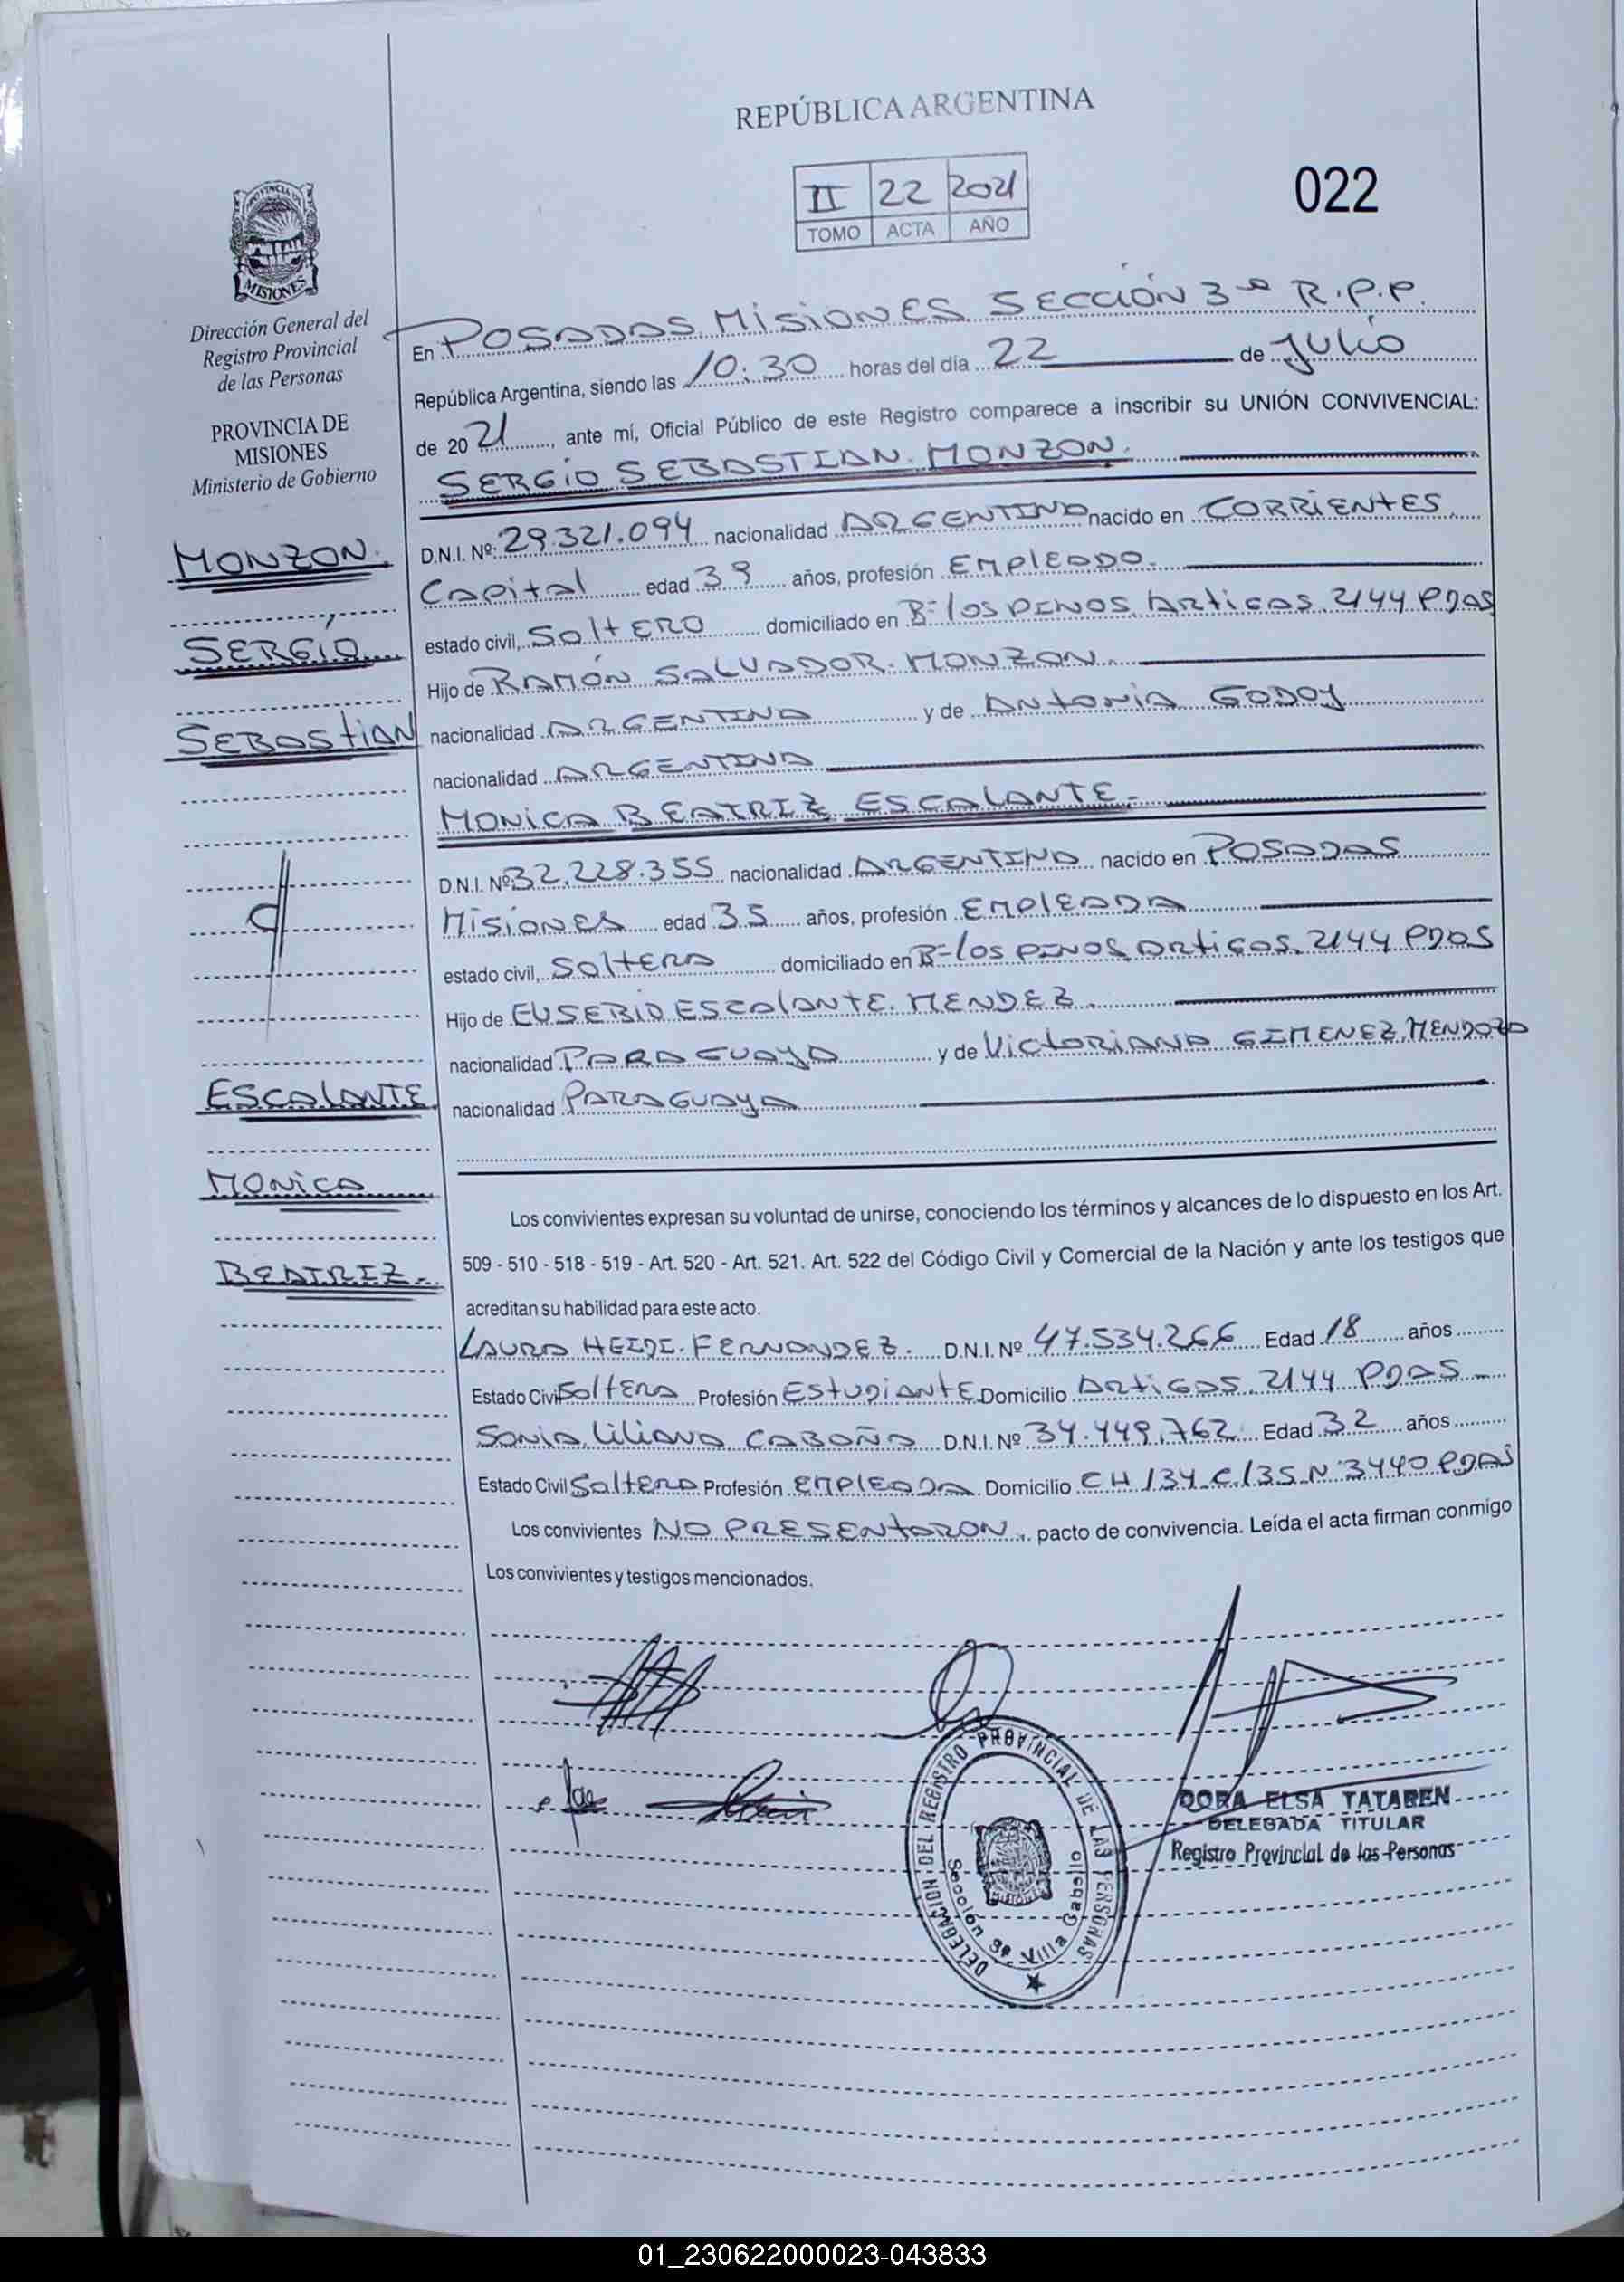 REPÚBLICA ARGENTINA
II 22 2021
TOMO ACTA AÑO
022
PROVINCIA DE
MISIONES
Dirección General del
Registro Provincial
de las Personas
PROVINCIA DE
MISIONES
Ministerio de Gobierno
MONZON.
SERGIO
SEBASTIAN
ESCALANTE
MONICA
BEATRIZ.-
En POSADAS, MISIONES SECCIÓN 3ª R.P.P.
República Argentina, siendo las 10:30 horas del día 22 de Julio
de 2021, ante mí, Oficial Público de este Registro comparece a inscribir su UNIÓN CONVIVENCIAL:
SERGIO SEBASTIAN. MONZON.
D.N.I. Nº: 29.321.094 nacionalidad ARGENTINA nacido en CORRIENTES
Capital edad 39 años, profesión EMPLEADO.
estado civil, SOLTERO domiciliado en Bº los PINOS Artigas. 2144 PDAS
Hijo de RAMÓN SALVADOR. MONZON.
nacionalidad ARGENTINA y de ANTONIA GODOY
nacionalidad ARGENTINA
MONICA BEATRIZ ESCALANTE.-
D.N.I. Nº 32.228.355 nacionalidad ARGENTINA nacido en POSADAS
Misiones edad 35 años, profesión EMPLEADA
estado civil, Soltera domiciliado en Bº los PINOS Artigas. 2144 PDAS
Hijo de EUSEBIO ESCALANTE. MENDEZ.
nacionalidad PARAGUAYA y de Victoriana GIMENEZ MENDOZA
nacionalidad PARAGUAYA
Los convivientes expresan su voluntad de unirse, conociendo los términos y alcances de lo dispuesto en los Art.
509 - 510 - 518 - 519 - Art. 520 - Art. 521. Art. 522 del Código Civil y Comercial de la Nación y ante los testigos que
acreditan su habilidad para este acto.
LAURA HEIDI. FERNANDEZ. D.N.I. Nº 47.534.266 Edad 18 años
Estado Civil Soltera Profesión ESTUDIANTE Domicilio Artigas. 2144 PDAS -
Sonia Liliana CABAÑA D.N.I. Nº 34.449.762 Edad 32 años
Estado Civil Soltera Profesión EMPLEADA Domicilio CH 134 C/35 N 3440 PDAS
Los convivientes NO PRESENTARON, pacto de convivencia. Leída el acta firman conmigo
Los convivientes y testigos mencionados.
DELEGACION DEL REGISTRO PROVINCIAL DE LAS PERSONAS
Sección 3ª Villa Cabello
DORA ELSA TATAREN
DELEGADA TITULAR
Registro Provincial de las Personas
01_230622000023-043833